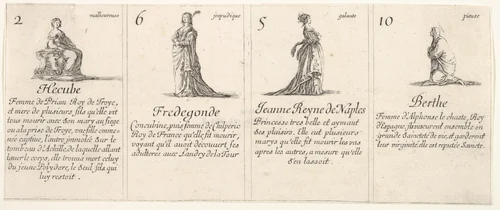 2 malheureuse
Hecube
Femme de Priam Roy de Troye,
et mere de plusieurs fils qu'elle vit
tous mourir avec Son mary au siege
ou a la prise de Troye, une fille emme-
née captive, l'autre immolée Sur le
tombeau d'Achille, de laquelle allant
laver le corps, elle trouva mort celuy
du jeune Polydore, le Seul fils qui
luy restoit.
6 impudique
Fredegonde
Concubine, puis femme de Chilperic
Roy de France qu'elle fit mourir,
voyant qu'il auoit découuert ses
adulteres auec Landry de la Tour
5 galante
Jeanne Reyne de Naples
Princesse tres belle et aymant
Ses plaisirs. Elle eut plusieurs
marys qu'elle fit mourir les vns
apres les autres, a mesure qu'elle
S'en lassoit.
10 pieuse
Berthe
Femme d'Alphonse le chaste, Roy
d'Espagne, ils vescurent ensemble en
grande Saincteté de vie, et garderent
leur virginité. elle est reputée Saincte.